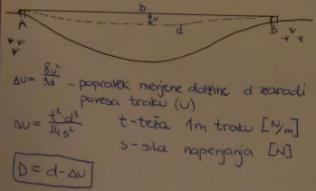 D
A u d B
Δu = 8u²/3d ... popravek merjene dolžine d zaradi
povesa traku (u)
Δu = t² d³/24s² t - teža 1m traku [N/m]
s - sila napenjanja [N]
D = d - Δu